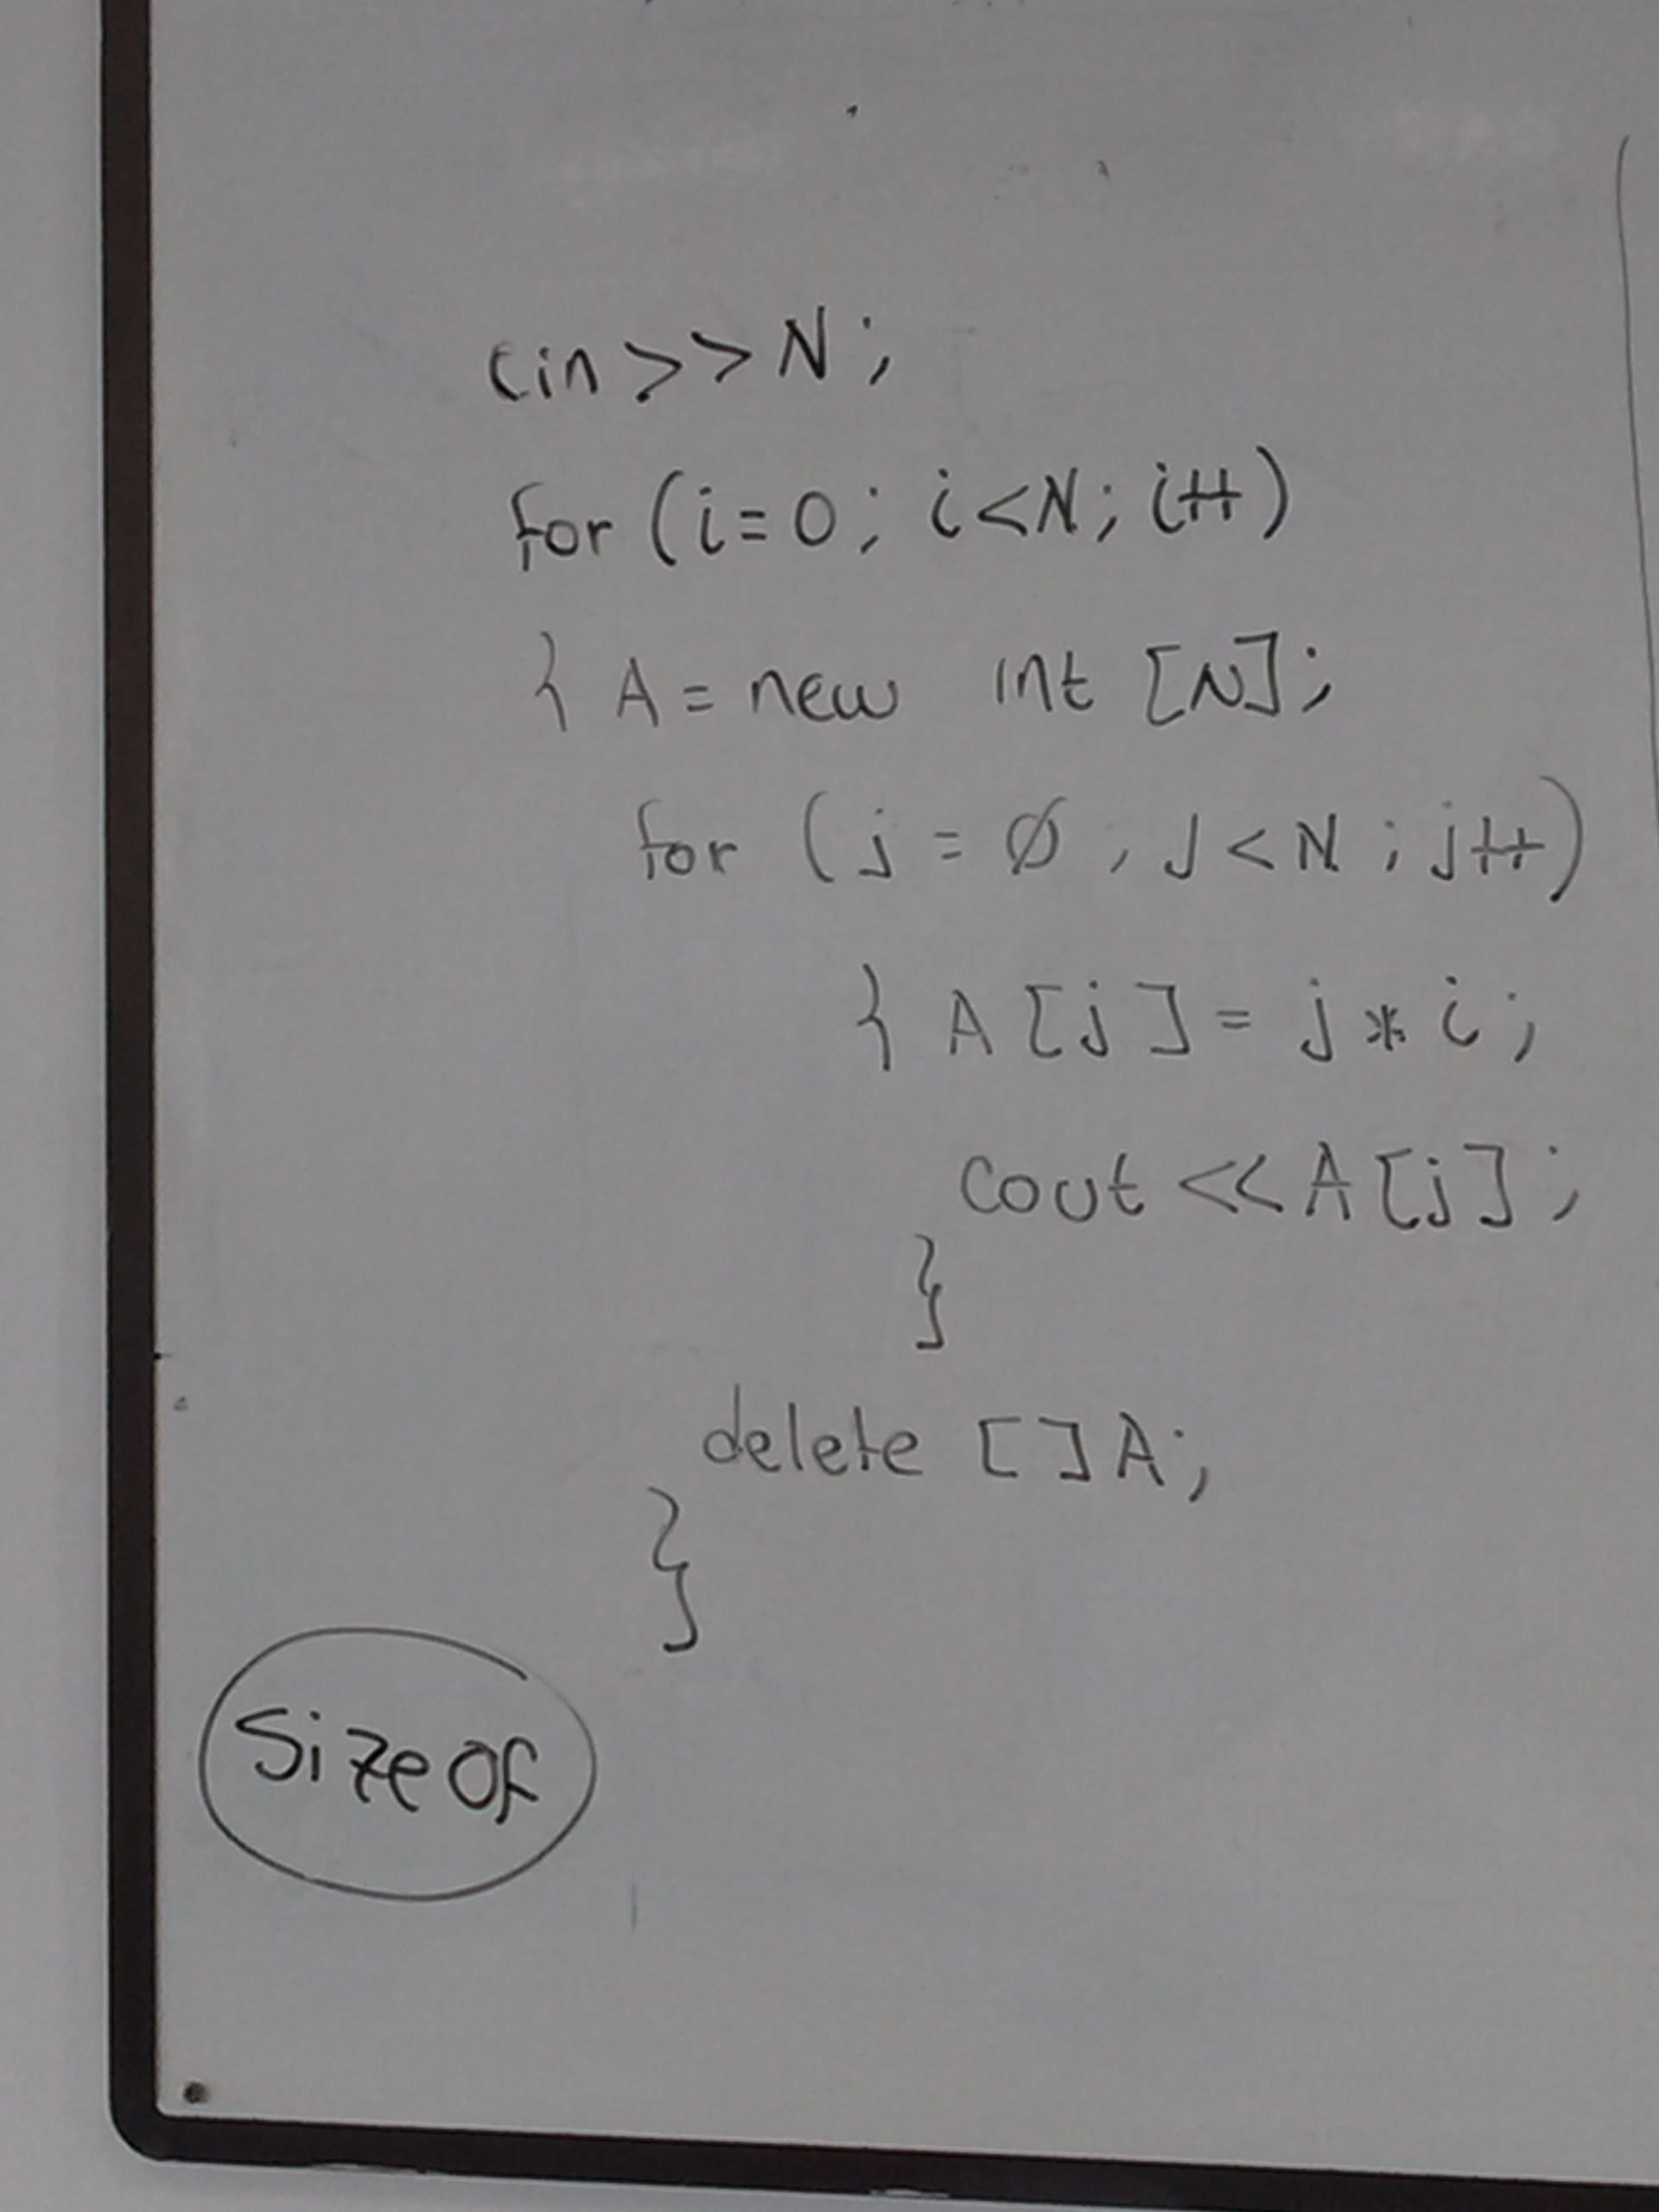 cin >> N ;
for (i = 0 ; i < N ; i++)
{ A = new int [N];
for ( j = Ø , j < N ; j++)
{ A [j] = j * i ;
cout << A [j] ;
}
delete [ ] A ;
}
Size of